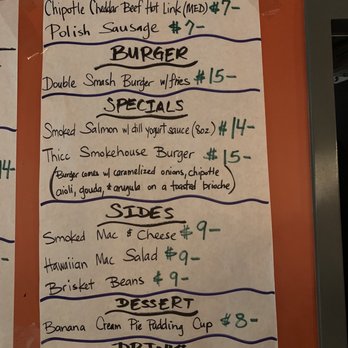 Chipotle Cheddar Beef Hot Link (MED) $7-
Polish Sausage $7-
BURGER
Double Smash Burger w/ fries $15-
SPECIALS
Smoked Salmon w/ dill yogurt sauce (8oz) $14-
Thicc Smokehouse Burger $15-
(Burger comes w/ caramelized onions, chipotle
aioli, gouda, & arugula on a toasted brioche)
SIDES
Smoked Mac & Cheese $9-
Hawaiian Mac Salad $9-
Brisket Beans $9-
DESSERT
Banana Cream Pie Pudding Cup $8-
DRINKS
14-